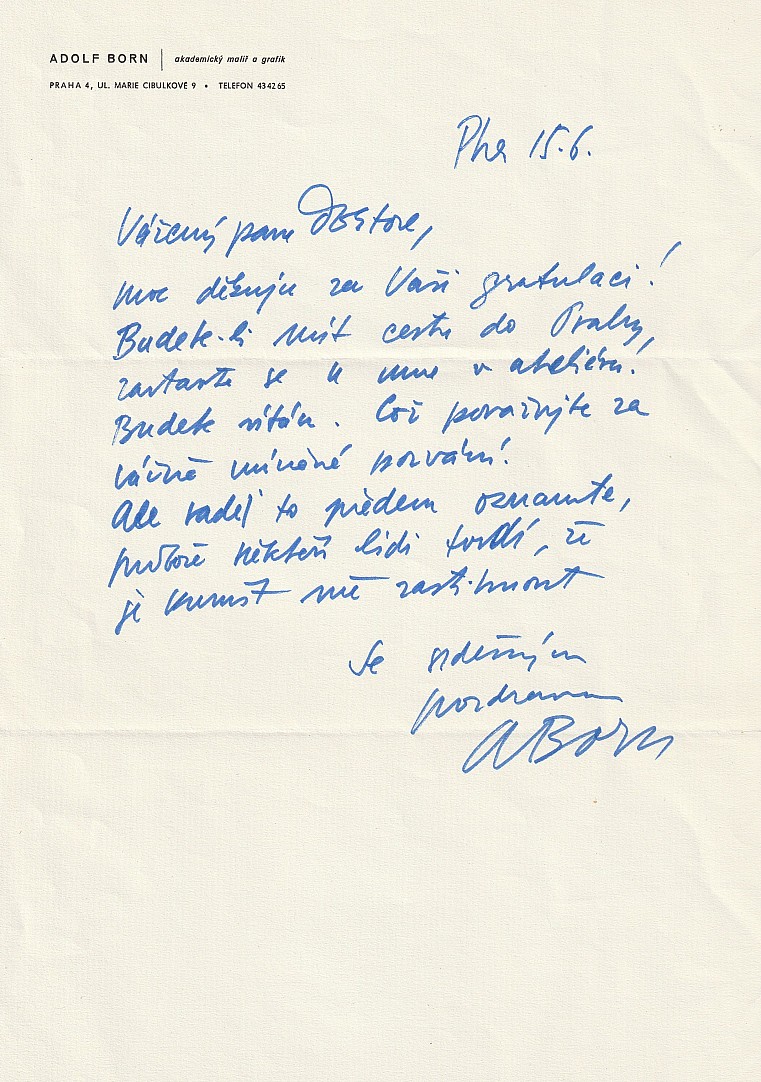 ADOLF BORN | akademický malíř a grafik
PRAHA 4, UL. MARIE CIBULKOVÉ 9 • TELEFON 434265
Pha 15.6.
Vážený pane Doktore,
moc děkuju za Vaši gratulaci!
Budete-li mít cestu do Prahy,
zastavte se u mne v ateliéru!
Budete vítán. Což považujte za
vážně míněné pozvání!
Ale raději to předem oznamte,
protože někteří lidi tvrdí, že
je kumšt mě zastihnout
Se srdečným
pozdravem
ABorn